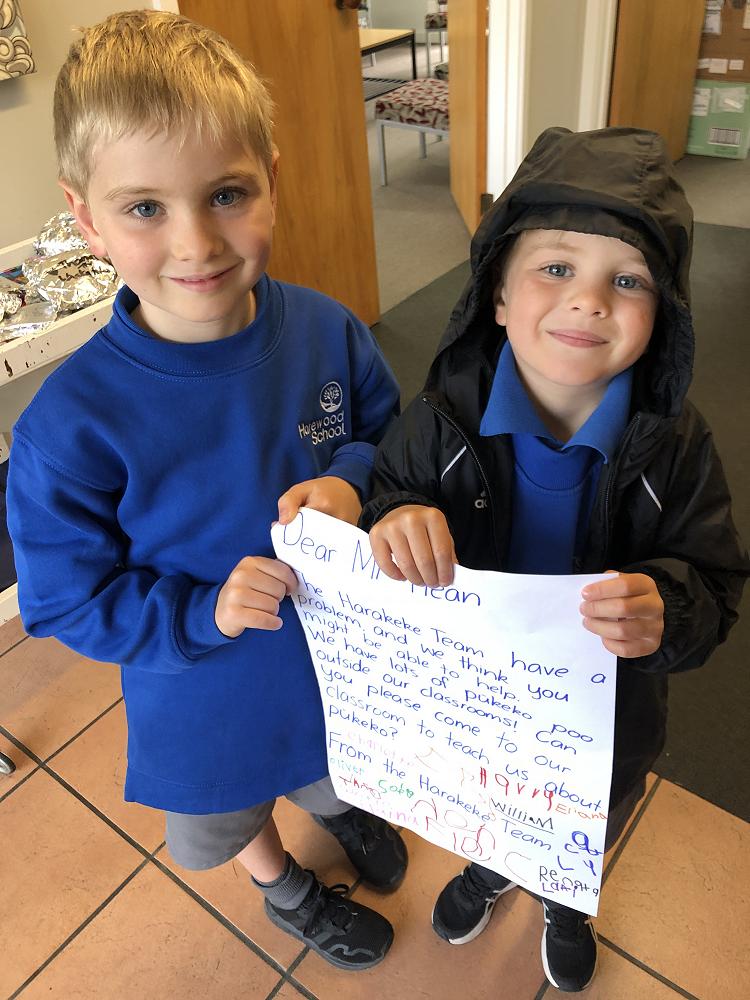 Harewood
School
Dear Mr
The Harakeke Team have a
problem and we think you
might be able to help.
We have lots of pukeko poo
outside our classrooms! Can
you please come to our
classroom to teach us about
pukeko?
From the Harakeke Team
Oliver
Harry
William
Eliana